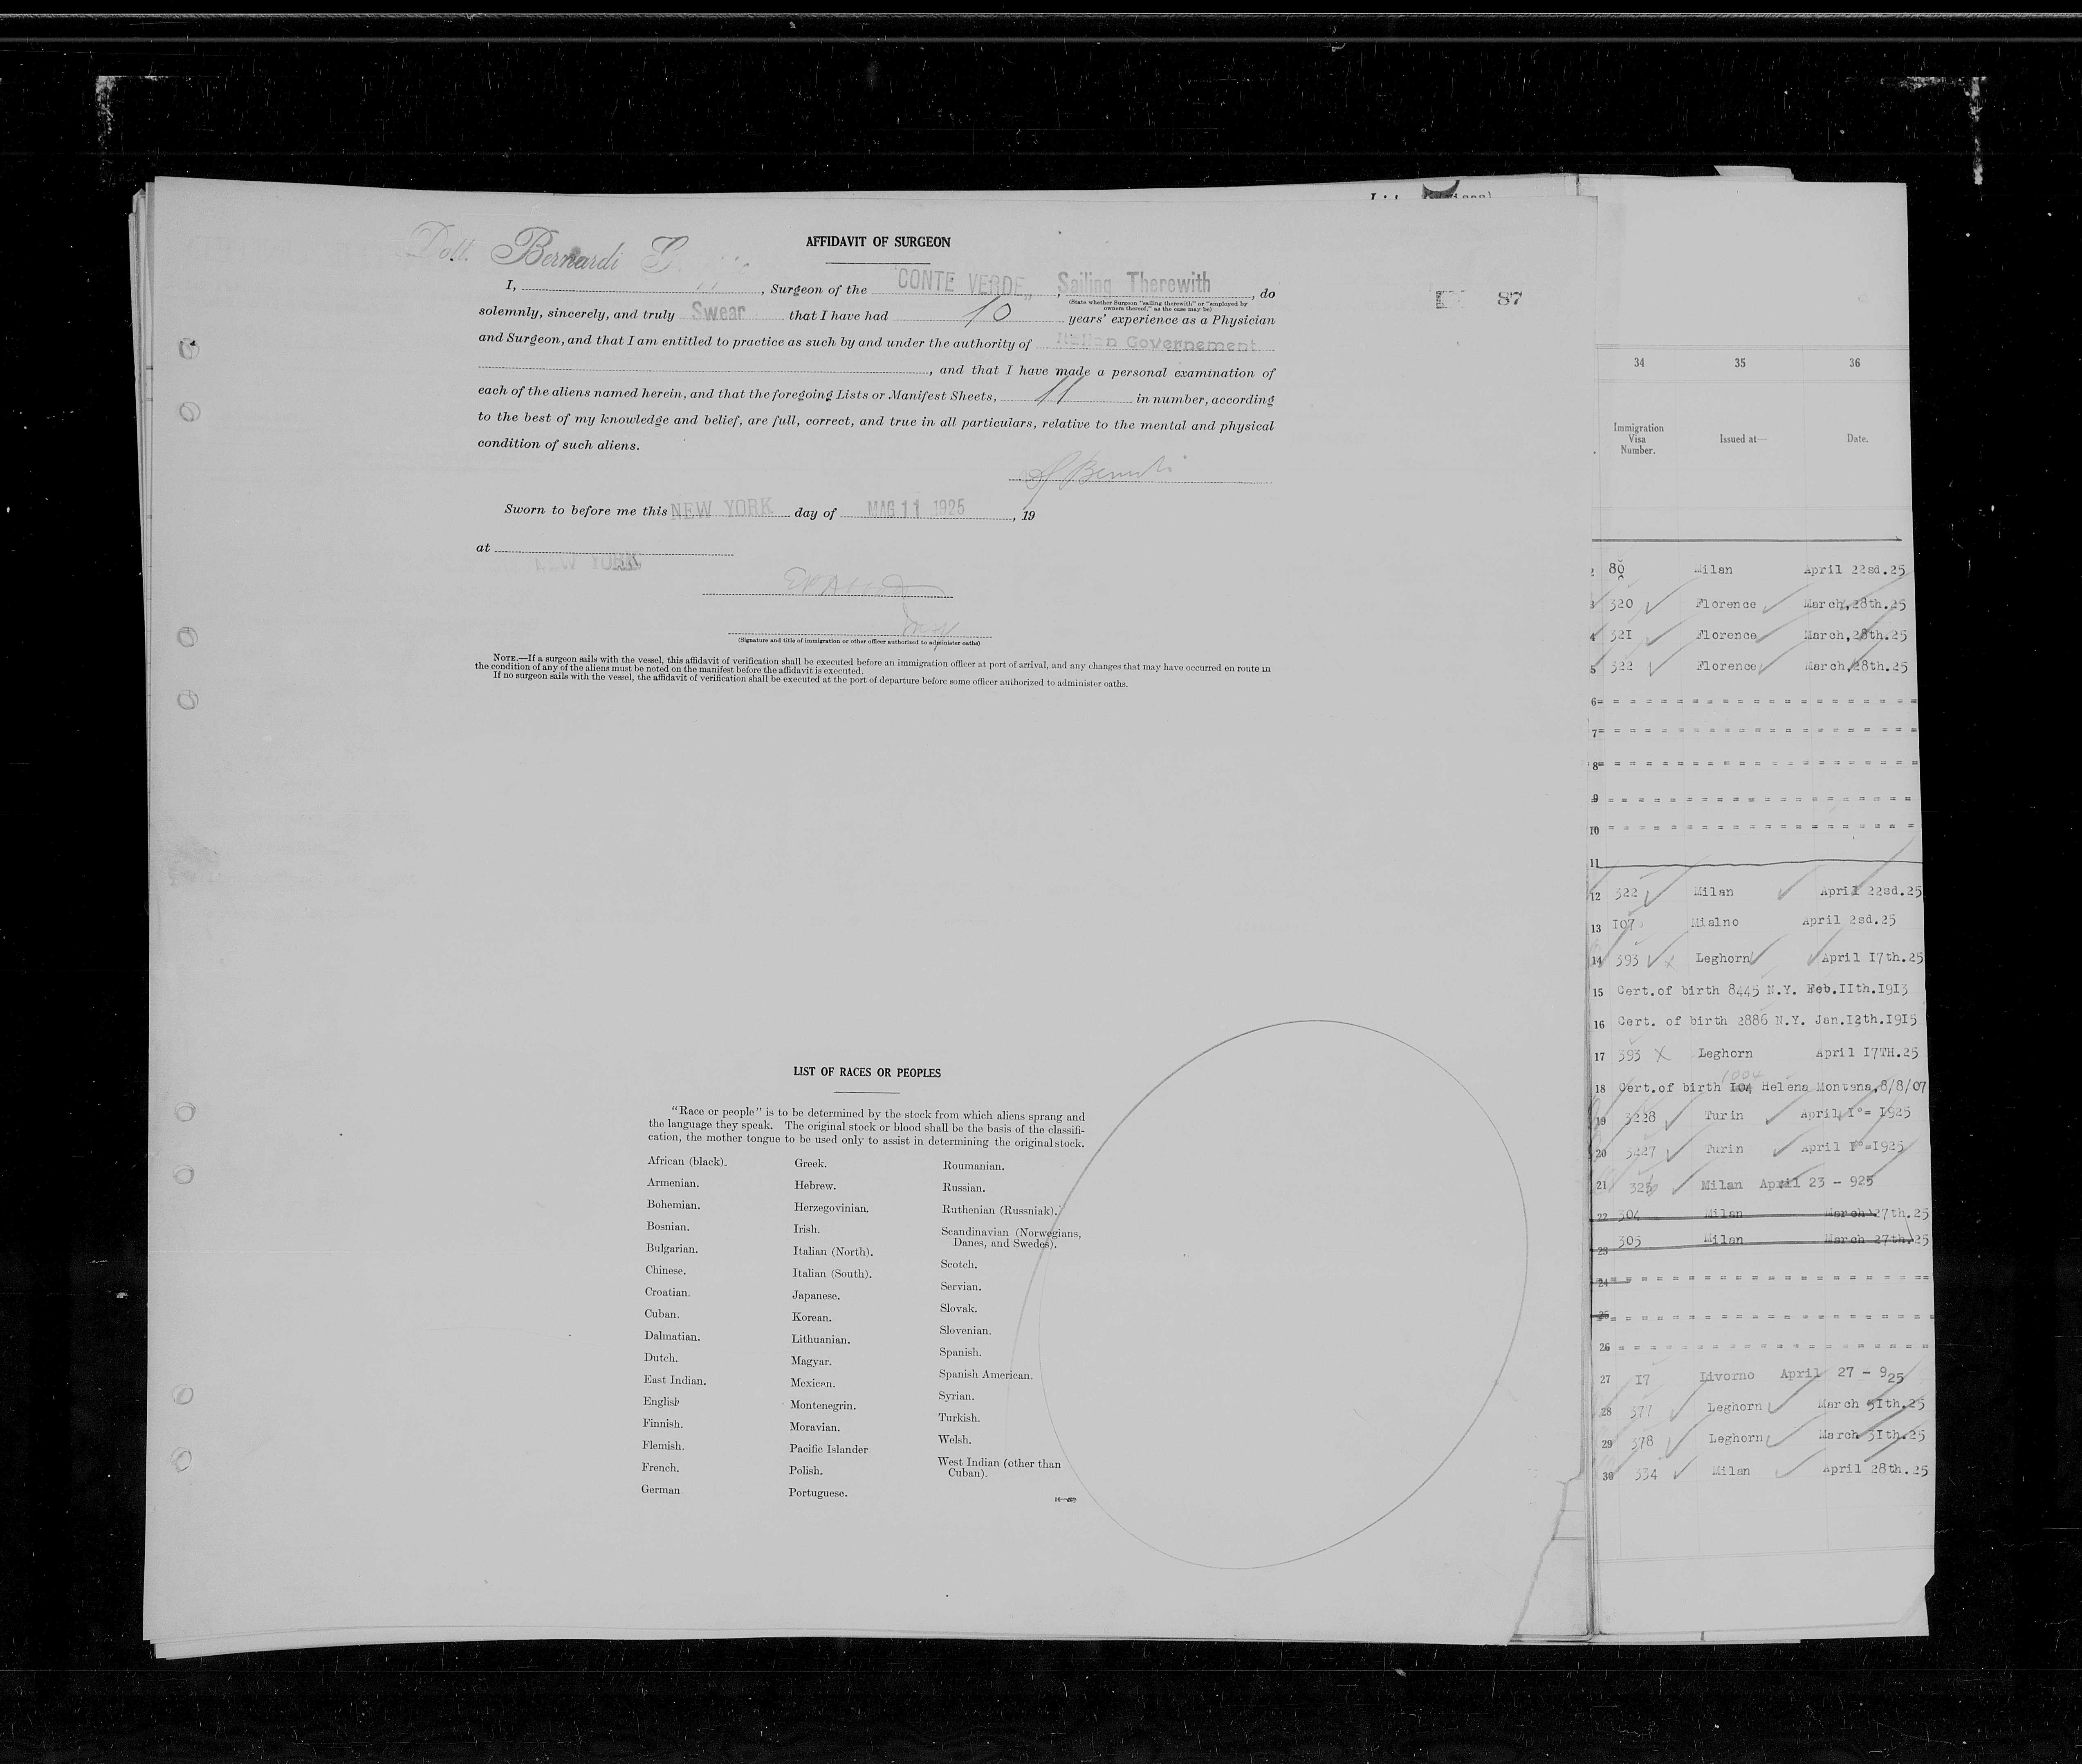 Dott. Bernardi G
AFFIDAVIT OF SURGEON
I, , Surgeon of the "CONTE VERDE„ , Sailing Therewith , do
(State whether Surgeon "sailing therewith" or "employed by
owners thereof," as the case may be)
solemnly, sincerely, and truly Swear that I have had 10 years' experience as a Physician
and Surgeon, and that I am entitled to practice as such by and under the authority of Italian Governement
, and that I have made a personal examination of
each of the aliens named herein, and that the foregoing Lists or Manifest Sheets, 11 in number, according
to the best of my knowledge and belief, are full, correct, and true in all particulars, relative to the mental and physical
condition of such aliens.
Sworn to before me this NEW YORK day of MAG 11 1925 , 19
at
NEW YORK
(Signature and title of immigration or other officer authorized to administer oaths)
NOTE.—If a surgeon sails with the vessel, this affidavit of verification shall be executed before an immigration officer at port of arrival, and any changes that may have occurred en route in
the condition of any of the aliens must be noted on the manifest before the affidavit is executed.
If no surgeon sails with the vessel, the affidavit of verification shall be executed at the port of departure before some officer authorized to administer oaths.
87
LIST OF RACES OR PEOPLES
"Race or people" is to be determined by the stock from which aliens sprang and
the language they speak. The original stock or blood shall be the basis of the classifi-
cation, the mother tongue to be used only to assist in determining the original stock.
African (black).
Armenian.
Bohemian.
Bosnian.
Bulgarian.
Chinese.
Croatian.
Cuban.
Dalmatian.
Dutch.
East Indian.
English
Finnish.
Flemish.
French.
German
Greek.
Hebrew.
Herzegovinian.
Irish.
Italian (North).
Italian (South).
Japanese.
Korean.
Lithuanian.
Magyar.
Mexican.
Montenegrin.
Moravian.
Pacific Islander.
Polish.
Portuguese.
Roumanian.
Russian.
Ruthenian (Russniak).
Scandinavian (Norwegians,
Danes, and Swedes).
Scotch.
Servian.
Slovak.
Slovenian.
Spanish.
Spanish American.
Syrian.
Turkish.
Welsh.
West Indian (other than
Cuban).
34 35 36
Immigration
Visa
Number.
Issued at—
Date.
2 80 Milan April 22sd.25
3 320 Florence March,28th.25
4 321 Florence March,28th.25
5 322 Florence March,28th.25
6= = = = = = = = = = = = = = = = = = =
7= = = = = = = = = = = = = = = = = = =
8= = = = = = = = = = = = = = = = = = =
9 = = = = = = = = = = = = = = = = = =
10 = = = = = = = = = = = = = = = = = =
11
12 322 Milan April 22sd.25
13 107 Mialno April 2sd.25
14 393 X Leghorn April I7th.25
15 Cert.of birth 8445 N.Y. Feb.IIth.I9I3
16 Cert. of birth 2886 N.Y. Jan.I2th.I9I5
17 393 X Leghorn April I7TH.25
1004
18 Cert.of birth I04 Helena Montana,8/8/07
19 3228 Turin April I°= I925
20 3427 Turin April I°=I925
21 325 Milan April 23 - 925
22 304 Milan March 27th.25
23 305 Milan March 27th.25
24= = = = = = = = = = = = = = = = = = =
25 = = = = = = = = = = = = = = = = = =
26 = = = = = = = = = = = = = = = = = =
27 I7 Livorno April 27 - 925
28 377 Leghorn March 3Ith.25
29 378 Leghorn March 3Ith.25
30 334 Milan April 28th.25